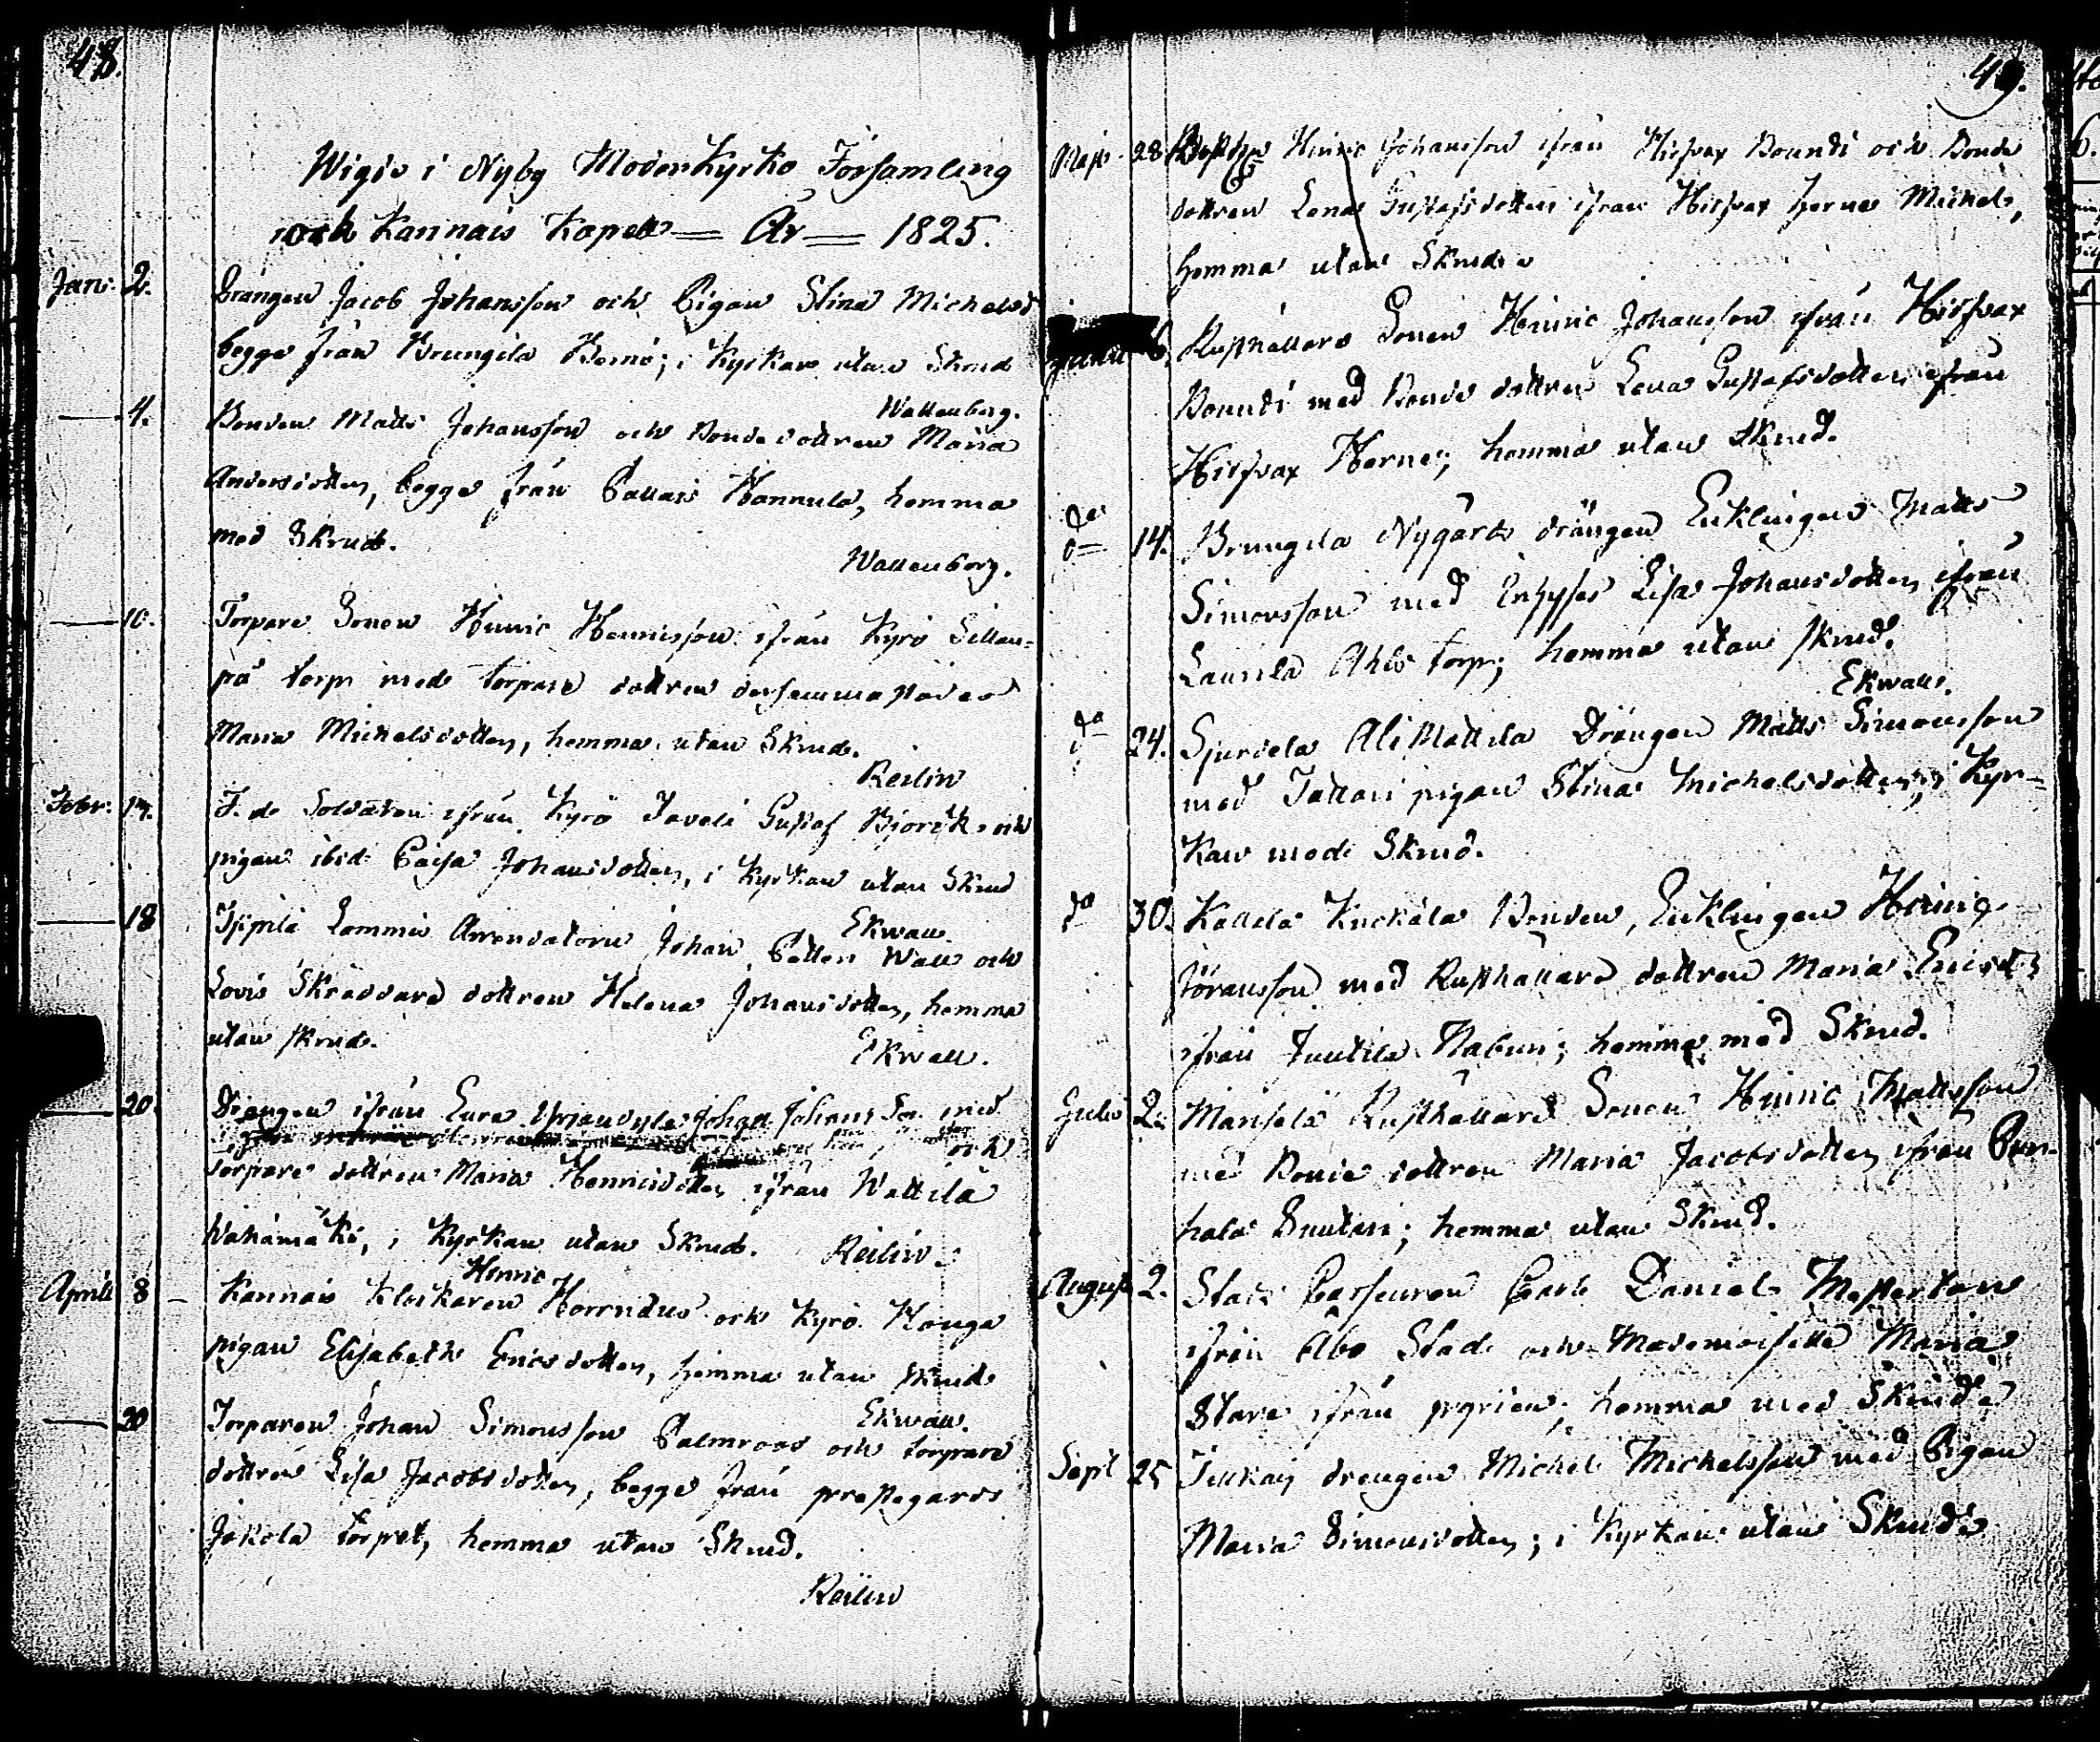 48.
Wigde i Nyby Moderkyrko Församling
och Karinais Kapell = År = 1825.
Janu. 2. Drängen Jacob Johansson och Pigan Stina Michelsd
begge från Brungila Bomä; i Kyrkan utan Skrud
Wallenberg.
4. Bonden Matts Johansson och Bondedottren Maria
Andersdotter, begge från Pallais Hannula, hemma
med Skrud.
Wallenberg.
10. Torpare Sonen Hinric Henricsson ifrån Kyrö Sillan-
pä torp med torpare dottren dersammastädes
Maria Michelsdotter, hemma utan Skrud.
Reilin
Febr. 17. F. d. Soldaten ifrån Kyrö Taveli Gustaf Björck och
pigan ibid. Caisa Johansdotter, i Kyrkan utan Skrud
Ekwall.
18 Lommis Arrendatorn Johan Petter Wall och
Lovis Skräddare dottren Helena Johansdotter, hemma
utan skrud.
Ekwall.
20. Drängen ifrån Eura Johan Johans Son med
och
Torpare dottren Maria Henricsdotter ifrån Wattila
Wahamäki, i Kyrkan utan Skrud. Reilin.
Henric
Aprill 8 Karinais Klockaren Horrndus och Kyrö Honga
pigan Elisabeth Ericsdotter, hemma utan skrud
Ekwall.
20 Torparen Johan Simonsson Palmroos och torpare
dottren Lisa Jacobsdotter, begge från prestegards
Jokela torpet, hemma utan Skrud.
Reilin
49.
Maji 28 Hinric Johansson ifrån Hirfvax Bounti och Bonde
dottren Lena Gustafsdotter ifrån Hirfvax Michels,
hemma utan Skrud.
6. Rusthållare Sonen Hinric Johansson ifrån Hirfvax
Bounti med Bonde dottren Lena Gustafsdotter ifrån
Hirfvax Herne; hemma utan Skrud.
do 14. Brungila Nygårds drängen Enklingen Matts
Simonsson med Inhyses Lisa Johansdotter ifrån
Laurila Ahls torp; hemma utan skrud.
Ekwall.
do 24. Sjurdela Ali Mattila Drängen Matts Simonsson
med Tattari pigan Stina Michelsdotter; i Kyr-
kan med Skrud.
do 30. Kallela Knckäla Bonden, Enklingen Hinric
Göransson med Rusthållare dottren Maria Ericsd:r
ifrån Juutila Nabun; hemma med Skrud.
Julii 2. Marsela Rusthållare Sonen Hinric Mattsson
med Bonde dottren Maria Jacobsdotter ifrån Pun-
hala Suutari; hemma utan Skrud.
August 2. Stads Casseuren Carl Daniel Mesterton
ifrån Åbo Stad och Mademoiselle Maria
Stare ifrån Pyrien; hemma med Skrud.
Sept 25 Tuckais drengen Michel Michelsson med Pigan
Maria Simonsdotter; i Kyrkan utan Skrud.